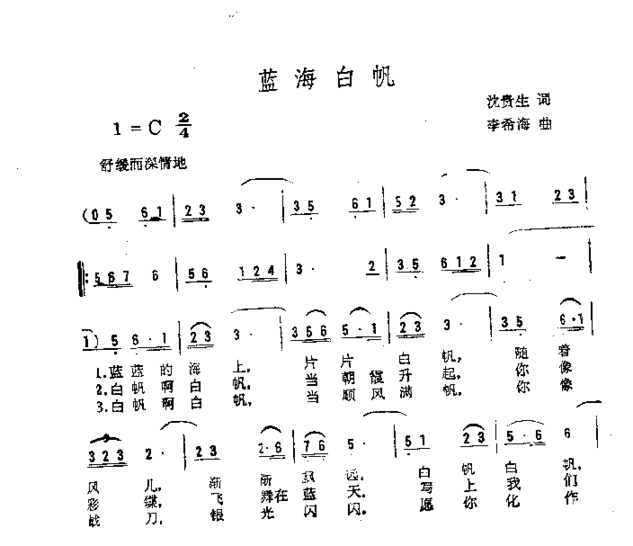 蓝海白帆
沈贵生 词
1=C 2/4
李希海 曲
舒缓而深情地
(05 61 | 23 3· | 35 61 | 52 3· | 31 23 |
567 6 | 56 124 | 3· 2 | 35 612 | 1 – |
1) 5 6·1 | 23 3· | 356 5·1 | 23 3· | 35 6·1
1.蓝蓝的海上，片片白帆，随着
2.白帆啊白帆，当朝霞升起，你像
3.白帆啊白帆，当顺风满帆，你像
323 2· | 23 2·6 | 76 5· | 51 23 | 5·6 6
风儿，渐渐飘远。白帆白帆，
彩蝶，飞舞在蓝天。写上我们
战刀，银光闪闪。愿你化作